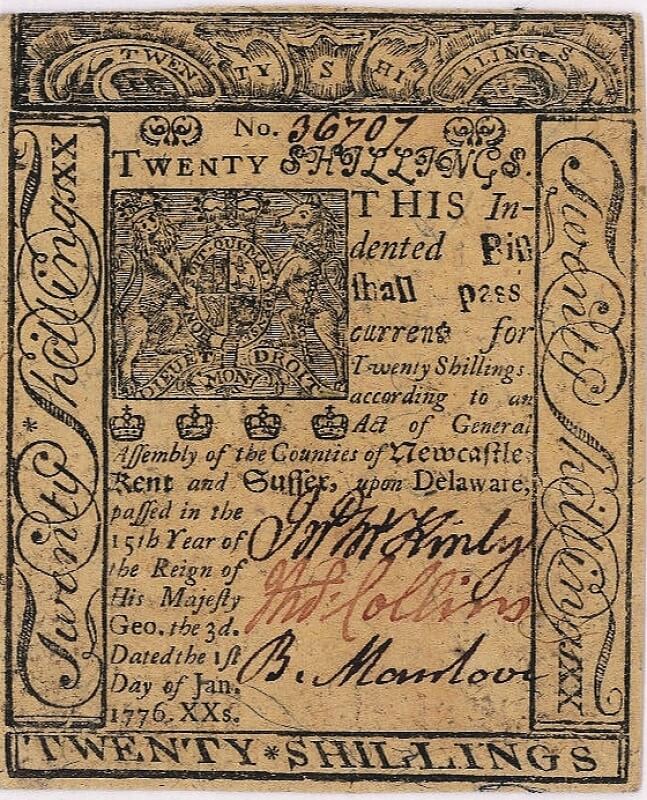 TWENTY SHILLINGS
No. 36707
TWENTY SHILLINGS.
THIS In-
dented Bill
ſhall paſs
current for
Twenty Shillings.
according to an
Act of General
Aſſembly of the Counties of Newcaſtle
Kent and Suſſex, upon Delaware,
paſſed in the
15th Year of
the Reign of
His Majeſty
Geo. the 3d.
Dated the 1ſt
Day of Jan.
1776. XXs.
Jno McKinly
Thos. Collins
B. Manlove
HONI SOIT QUI MAL Y PENSE
DIEU ET MON DROIT
Twenty Shillings XX
Twenty Shillings XX
TWENTY * SHILLINGS